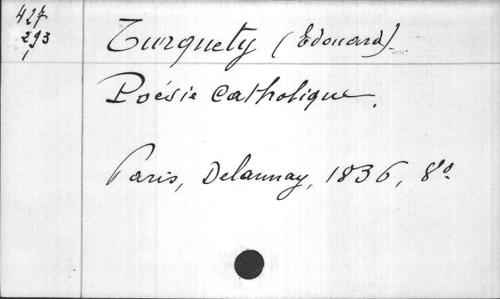 427
293
1
Turquety (Edouard)
Poésie Catholique.
Paris, Delaunay, 1836, 8º